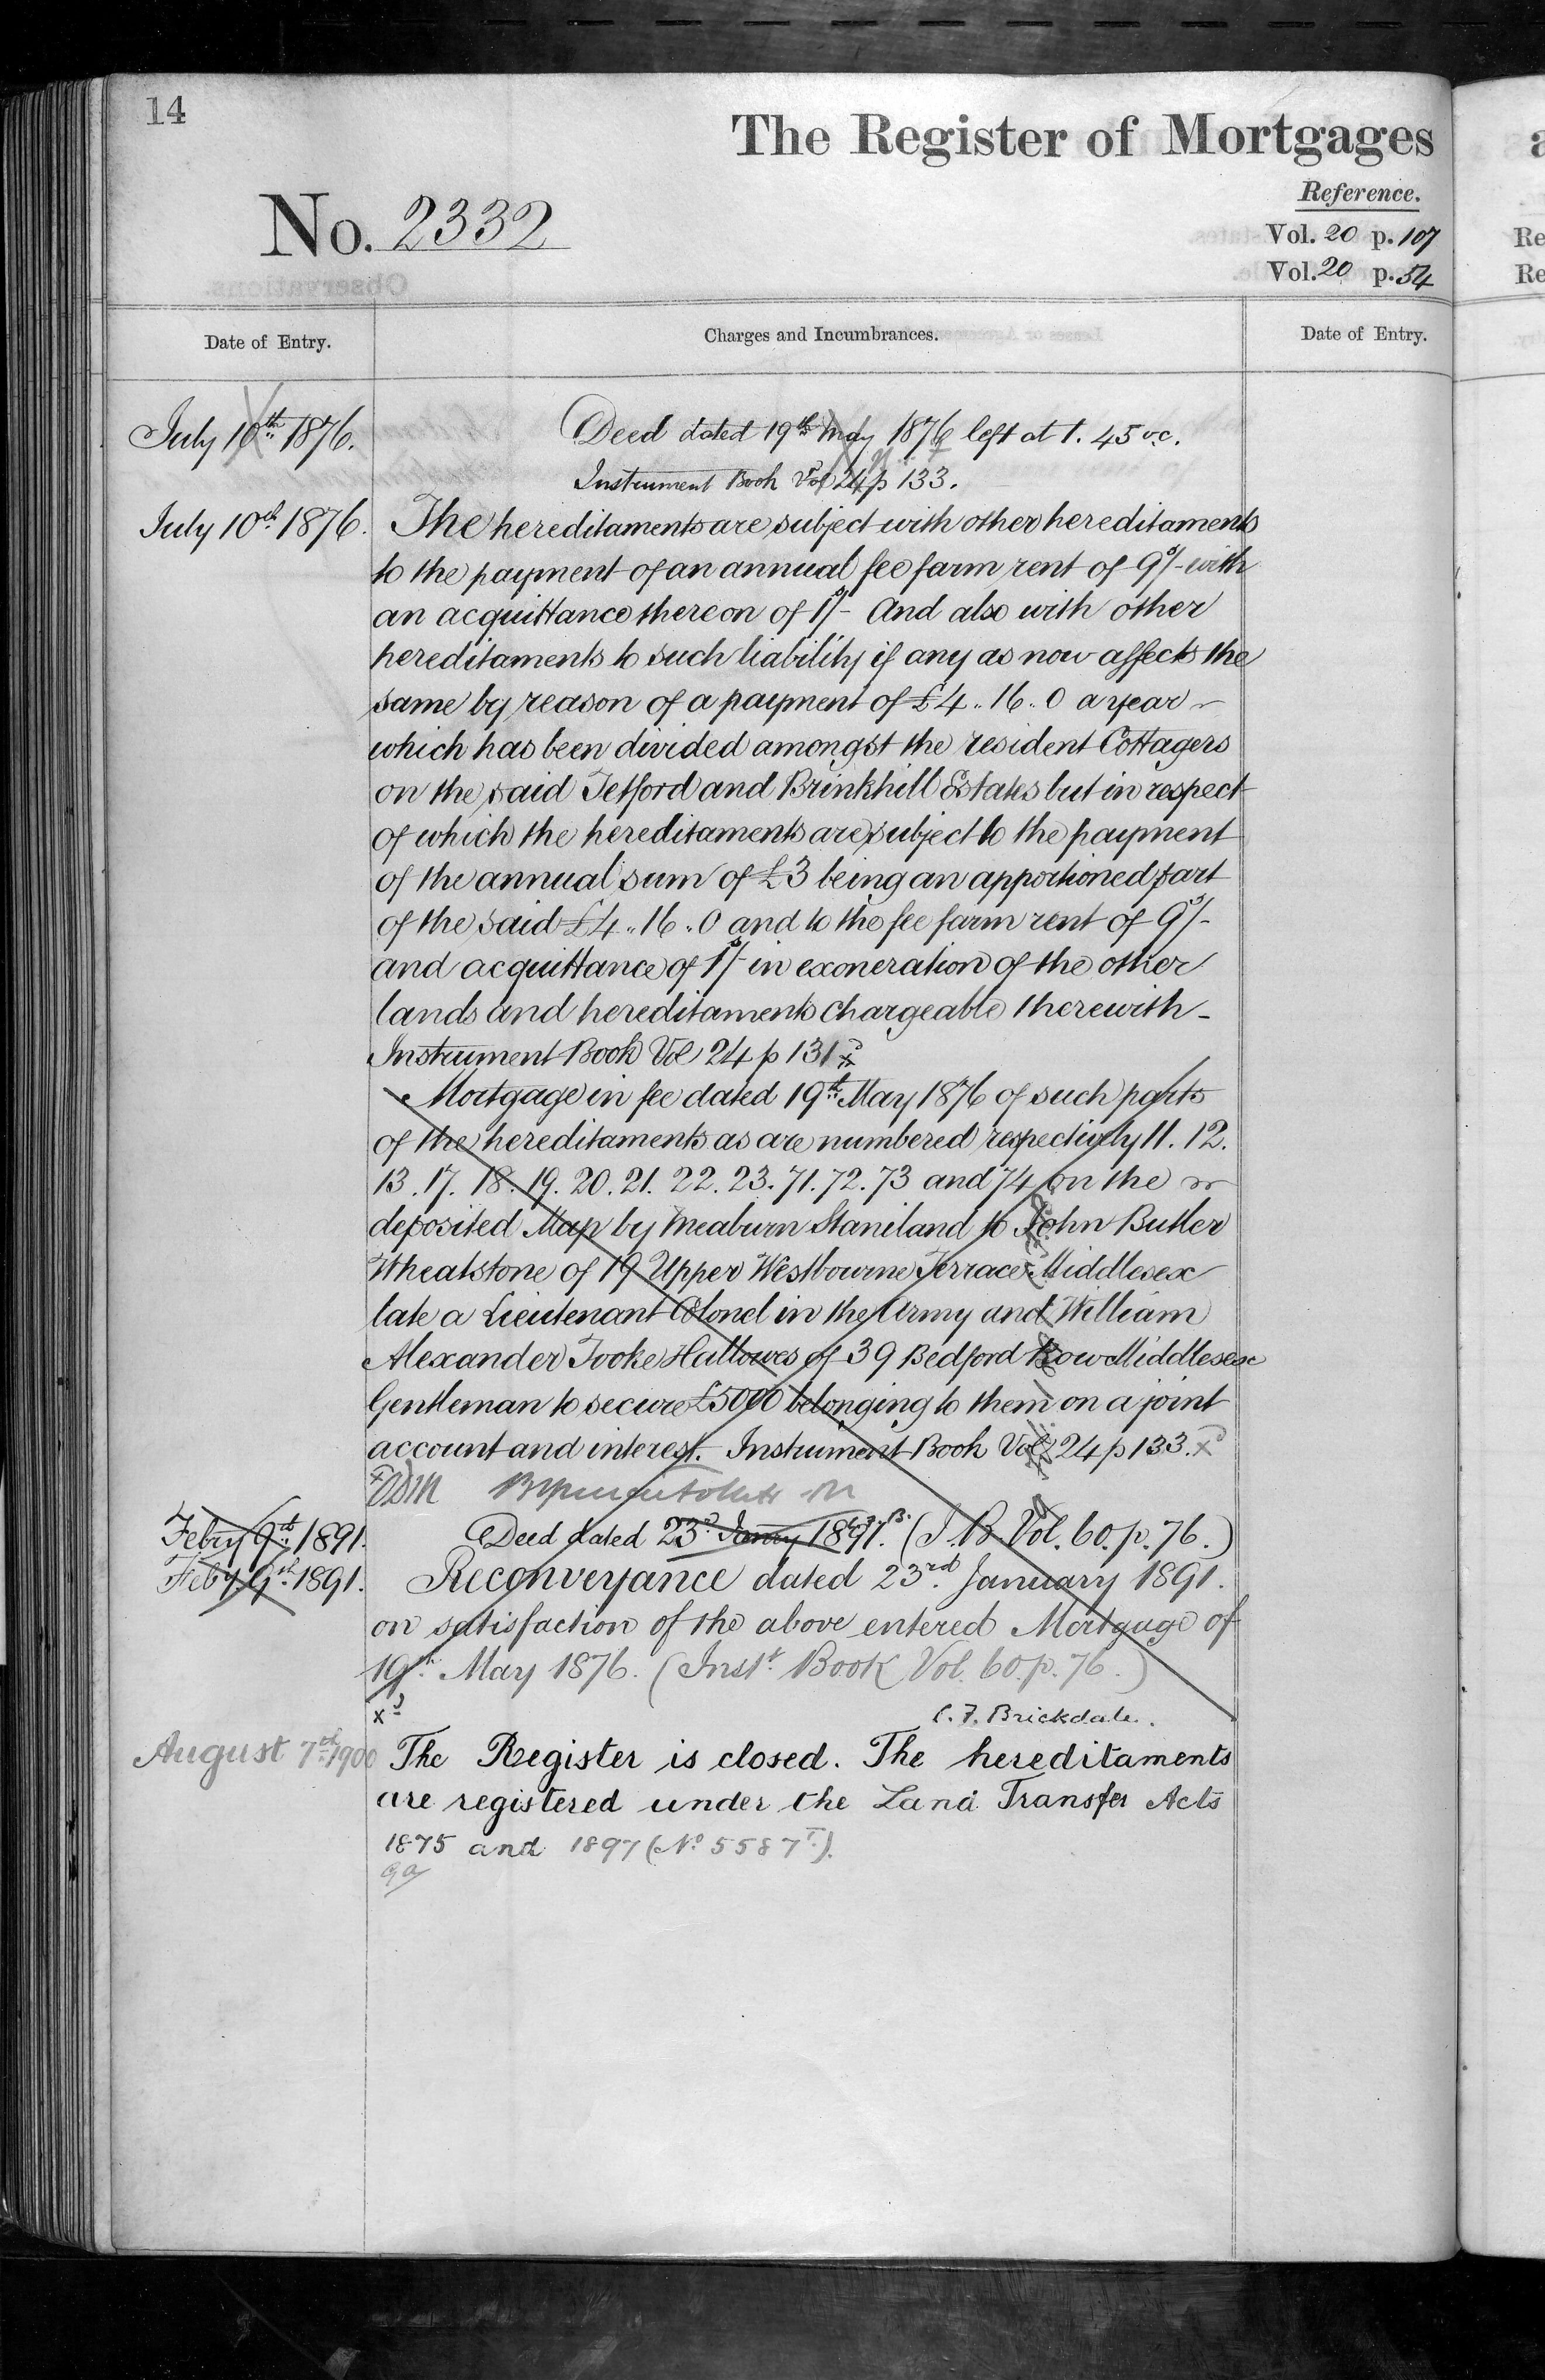 14
The Register of Mortgages
Reference.
No. 2332
Vol. 20 p. 107
Vol. 20 p. 54
Date of Entry.
Charges and Incumbrances.
Date of Entry.
July 10th 1876.
Deed dated 19th May 1876 left at 1. 45 o.c.
Instrument Book Vol 24 p 133.
July 10th 1876.
The hereditaments are subject with other hereditaments
to the payment of an annual fee farm rent of 9s/- with
an acquittance thereon of 1s/- And also with other
hereditaments to such liability if any as now affects the
same by reason of a payment of £4 .. 16 .. 0 a year
which has been divided amongst the resident Cottagers
on the said Tetford and Brinkhill Estates but in respect
of which the hereditaments are subject to the payment
of the annual sum of £3 being an apportioned part
of the said £4 .. 16 .. 0 and to the fee farm rent of 9s/-
and acquittance of 1s/- in exoneration of the other
lands and hereditaments chargeable therewith -
Instrument Book Vol 24 p 131 x
Mortgage in fee dated 19th May 1876 of such parts
of the hereditaments as are numbered respectively 11. 12.
13. 17. 18. 19. 20. 21. 22. 23. 71. 72. 73 and 74 on the
deposited Map by Meaburn Staniland to John Butler
Wheatstone of 19 Upper Westbourne Terrace Middlesex
late a Lieutenant Colonel in the Army and William
Alexander Tooke Hallowes of 39 Bedford Row Middlesex
Gentleman to secure £5000 belonging to them on a joint
account and interest. Instrument Book Vol 24 p 133. x
Febry 9th 1891.
Deed dated 23d Janry 1891. (I. B. Vol. 60. p. 76.)
Feby 9th 1891.
Reconveyance dated 23rd January 1891.
on satisfaction of the above entered Mortgage of
19th May 1876. (Inst. Book Vol. 60. p. 76.)
x
C. F. Brickdale.
August 7th 1900
The Register is closed. The hereditaments
are registered under the Land Transfer Acts
1875 and 1897 (No 5587 T.).